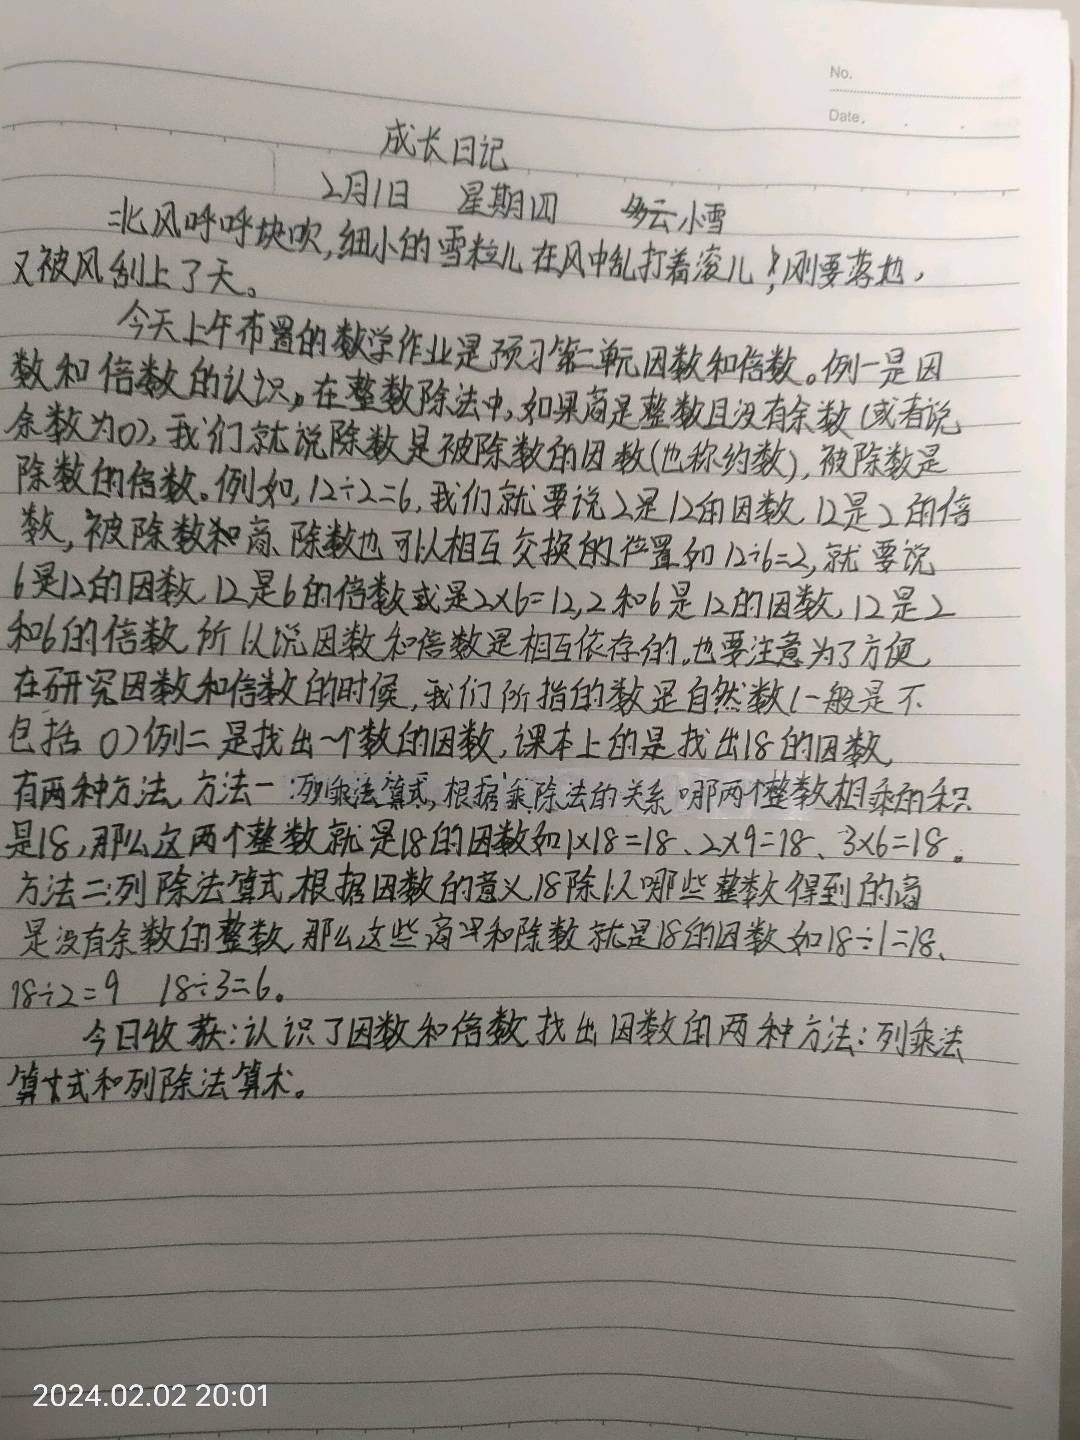 No.
Date.
成长日记
2月1日 星期四 多云小雪
北风呼呼块吹,细小的雪粒儿在风中乱打着滚儿,刚要落地,
又被风刮上了天。
今天上午布置的数学作业是预习第二单元因数和倍数。例一是因
数和倍数的认识,在整数除法中,如果商是整数且没有余数(或者说
余数为0),我们就说除数是被除数的因数(也称约数),被除数是
除数的倍数。例如,12÷2=6,我们就要说2是12的因数,12是2的倍
数,被除数和商、除数也可以相互交换的位置如12÷6=2,就要说
6是12的因数,12是6的倍数或是2×6=12,2和6是12的因数,12是2
和6的倍数,所以说因数和倍数是相互依存的。也要注意为了方便,
在研究因数和倍数的时候,我们所指的数是自然数(一般是不
包括0)例二是找出一个数的因数,课本上的是找出18的因数,
有两种方法,方法一:列乘法算式,根据乘除法的关系,哪两个整数相乘的积
是18,那么这两个整数就是18的因数如1×18=18、2×9=18、3×6=18。
方法二:列除法算式,根据因数的意义,18除以哪些整数得到的商
是没有余数的整数,那么这些商和除数就是18的因数如18÷1=18、
18÷2=9 18÷3=6。
今日收获:认识了因数和倍数,找出因数的两种方法:列乘法
算式和列除法算术。
2024.02.02 20:01